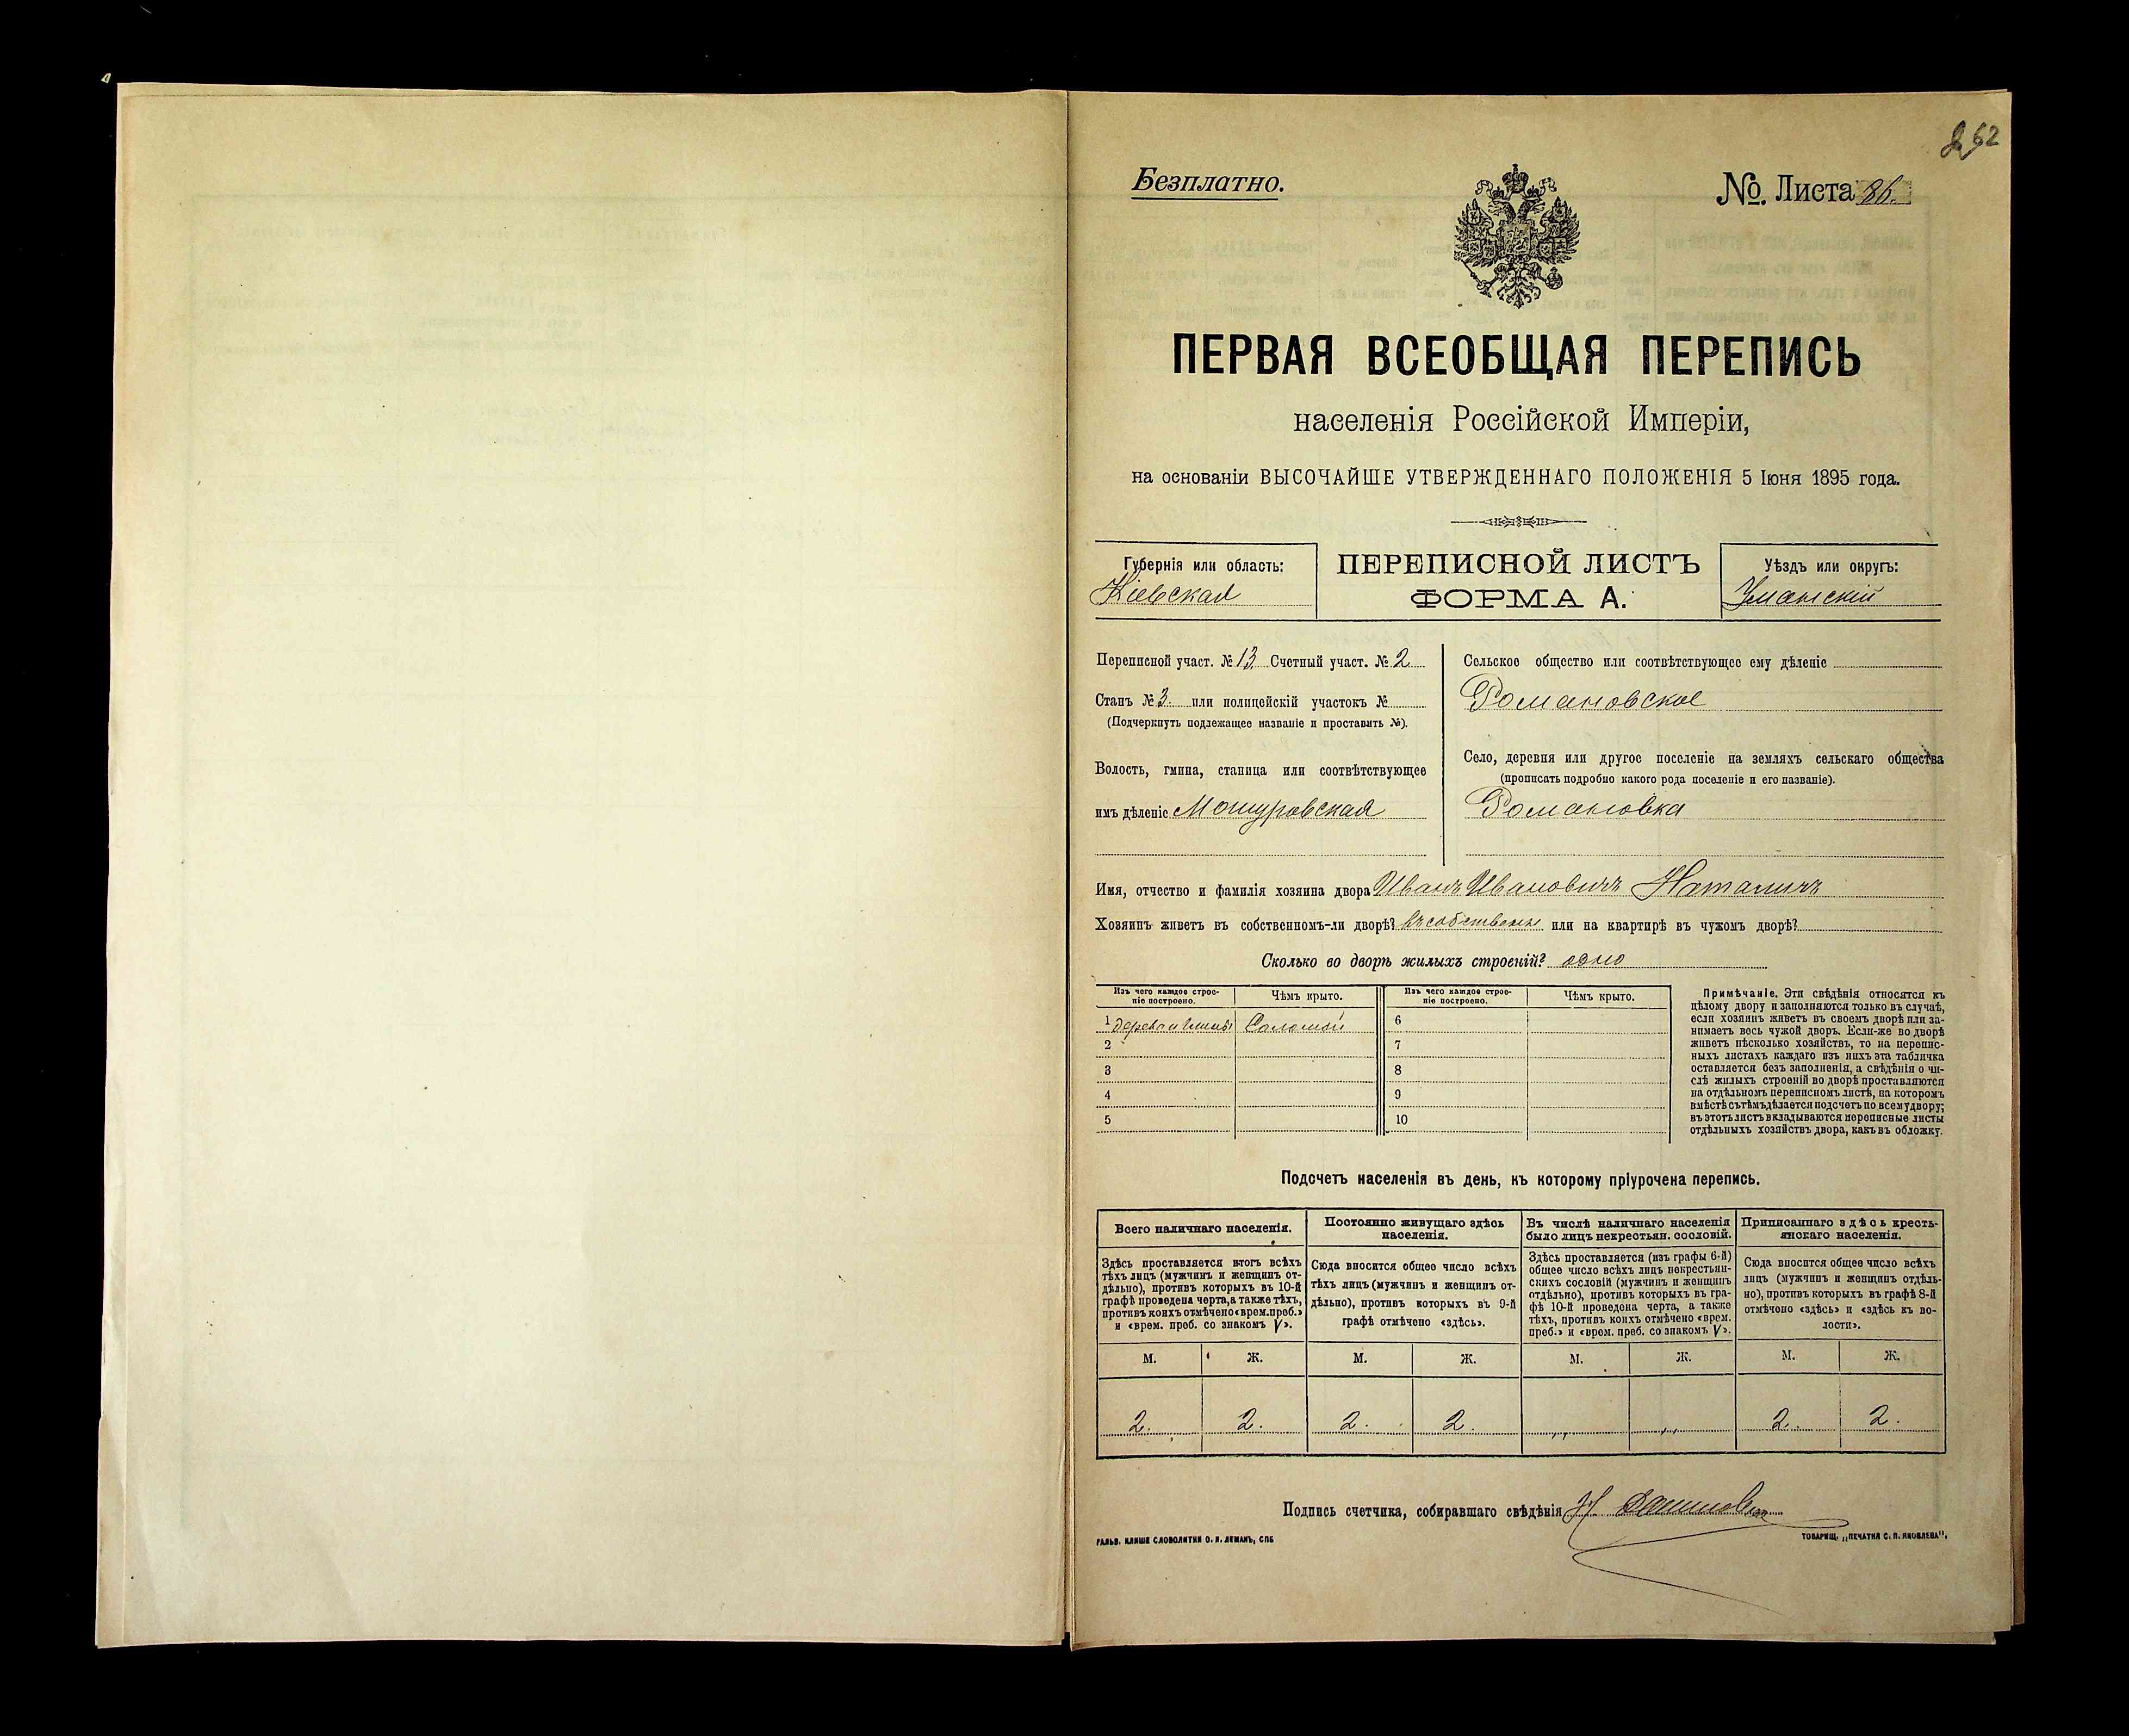 262
Безплатно.
№. Листа 86.
ПЕРВАЯ ВСЕОБЩАЯ ПЕРЕПИСЬ
населенія Россійской Имперіи,
на основаніи ВЫСОЧАЙШЕ УТВЕРЖДЕННАГО ПОЛОЖЕНІЯ 5 Іюня 1895 года.
Губернія или область:
Кіевская
ПЕРЕПИСНОЙ ЛИСТЪ
ФОРМА А.
Уѣздъ или округъ:
Уманскій
Переписной участ. № 13. Счетный участ. № 2
Станъ № 3. или полицейскій участокъ №
(Подчеркнуть подлежащее названіе и проставить №).
Волость, гмина, станица или соотвѣтствующее
имъ дѣленіе Мошуровская
Сельское общество или соотвѣтствующее ему дѣленіе
Романовское
Село, деревня или другое поселеніе на земляхъ сельскаго общества
(прописать подробно какого рода поселеніе и его названіе).
Романовка
Имя, отчество и фамилія хозяина двора Иванъ Ивановичъ
Хозяинъ живетъ въ собственномъ-ли дворѣ? въ собственн или на квартирѣ въ чужомъ дворѣ?
Сколько во дворѣ жилыхъ строеній? одно
Изъ чего каждое строе-
ніе построено.
Чѣмъ крыто.
Изъ чего каждое строе-
ніе построено.
Чѣмъ крыто.
1 дерева и глины Соломой
2
3
4
5
6
7
8
9
10
Примѣчаніе. Эти свѣдѣнія относятся къ
цѣлому двору и заполняются только въ случаѣ,
если хозяинъ живетъ въ своемъ дворѣ или за-
нимаетъ весь чужой дворъ. Если-же во дворѣ
живетъ нѣсколько хозяйствъ, то на перепис-
ныхъ листахъ каждаго изъ нихъ эта табличка
оставляется безъ заполненія, а свѣдѣнія о чи-
слѣ жилыхъ строеній во дворѣ проставляются
на отдѣльномъ переписномъ листѣ, на которомъ
вмѣстѣ съ тѣмъ дѣлается подсчетъ по всему двору;
въ этотъ листъ вкладываются переписные листы
отдѣльныхъ хозяйствъ двора, какъ въ обложку.
Подсчетъ населенія въ день, къ которому пріурочена перепись.
Всего наличнаго населенія.
Здѣсь проставляется итогъ всѣхъ
тѣхъ лицъ (мужчинъ и женщинъ от-
дѣльно), противъ которыхъ въ 10-й
графѣ проведена черта, а также тѣхъ,
противъ коихъ отмѣчено «врем. преб.»
и «врем. преб. со знакомъ V».
Постоянно живущаго здѣсь
населенія.
Сюда вносится общее число всѣхъ
тѣхъ лицъ (мужчинъ и женщинъ от-
дѣльно), противъ которыхъ въ 9-й
графѣ отмѣчено «здѣсь».
Въ числѣ наличнаго населенія
было лицъ некрестьян. сословій.
Здѣсь проставляется (изъ графы 6-й)
общее число всѣхъ лицъ некрестьян-
скихъ сословій (мужчинъ и женщинъ
отдѣльно), противъ которыхъ въ гра-
фѣ 10-й проведена черта, а также
тѣхъ, противъ коихъ отмѣчено «врем.
преб.» и «врем. преб. со знакомъ V».
Приписаннаго здѣсь кресть-
янскаго населенія.
Сюда вносится общее число всѣхъ
лицъ (мужчинъ и женщинъ отдѣль-
но), противъ которыхъ въ графѣ 8-й
отмѣчено «здѣсь» и «здѣсь къ во-
лости».
М. Ж. М. Ж. М. Ж. М. Ж.
2. 2. 2. 2. „ „ 2. 2.
Подпись счетчика, собиравшаго свѣдѣнія
ГАЛЬВ. КЛИШЕ СЛОВОЛИТНИ О. И. ЛЕМАНЪ, СПБ
ТОВАРИЩ. „ПЕЧАТНЯ С. П. ЯКОВЛЕВА".